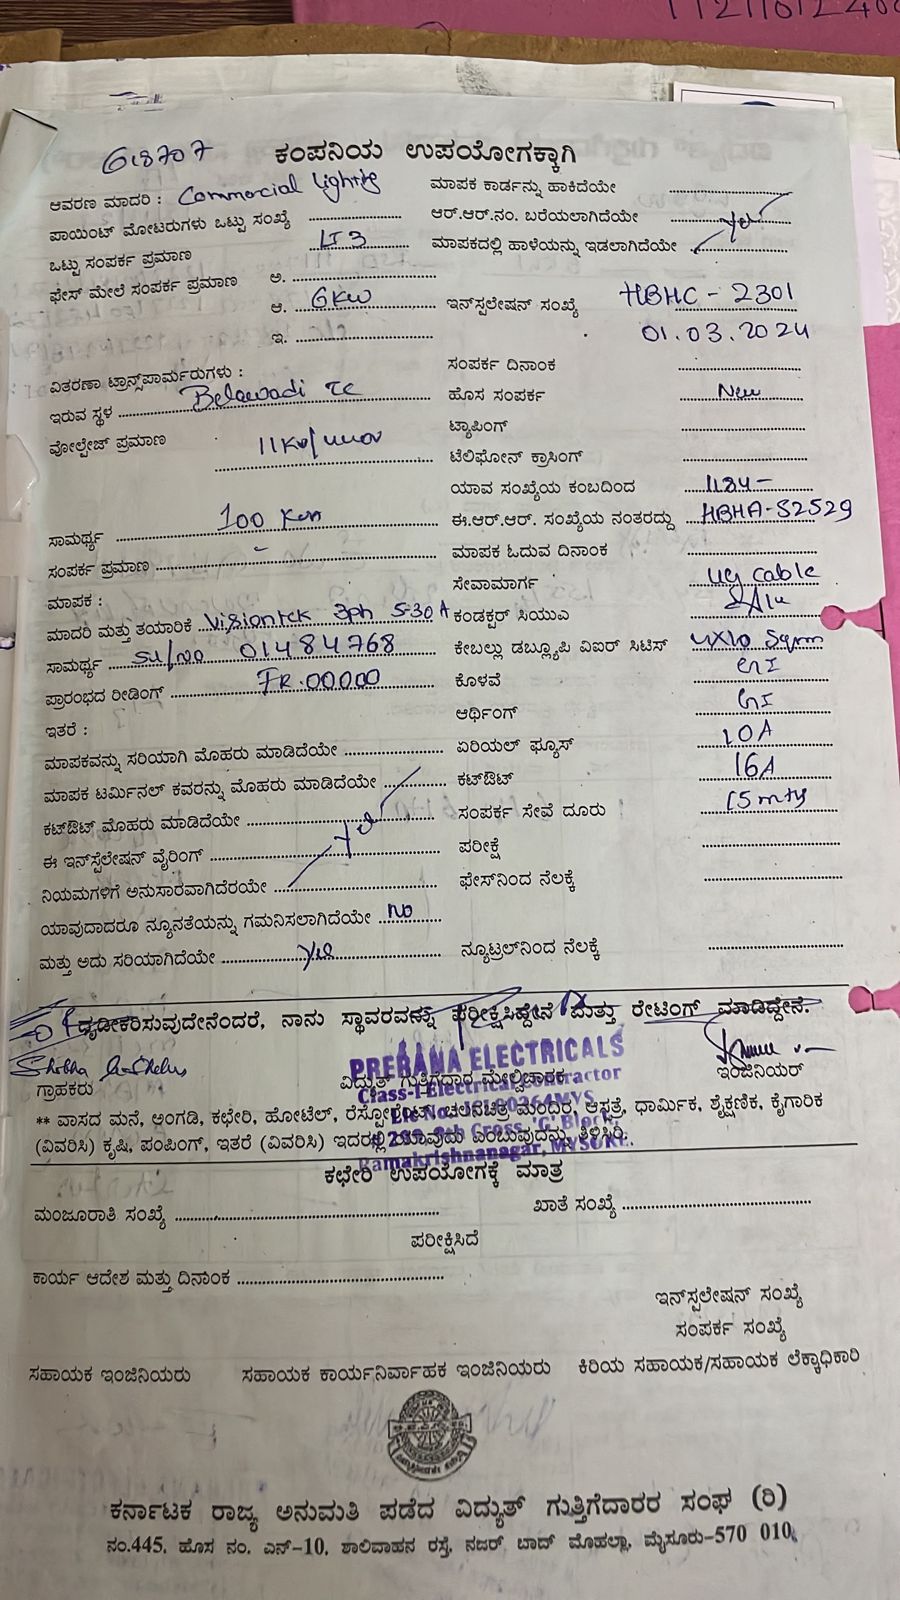 112116122400
613707 ಕಂಪನಿಯ ಉಪಯೋಗಕ್ಕಾಗಿ
ಆವರಣ ಮಾದರಿ : Commercial lighting ಮಾಪಕ ಕಾರ್ಡನ್ನು ಹಾಕಿದೆಯೇ
ಪಾಯಿಂಟ್ ಮೋಟರುಗಳು ಒಟ್ಟು ಸಂಖ್ಯೆ ಆರ್.ಆರ್.ನಂ. ಬರೆಯಲಾಗಿದೆಯೇ yes
ಒಟ್ಟು ಸಂಪರ್ಕ ಪ್ರಮಾಣ LT 3 ಮಾಪಕದಲ್ಲಿ ಹಾಳೆಯನ್ನು ಇಡಲಾಗಿದೆಯೇ
ಫೇಸ್ ಮೇಲೆ ಸಂಪರ್ಕ ಪ್ರಮಾಣ ಅ.
ಆ. 6KW ಇನ್‌ಸ್ಪಲೇಷನ್ ಸಂಖ್ಯೆ HBHC - 2301
ಇ. 01.03.2024
ವಿತರಣಾ ಟ್ರಾನ್ಸ್‌ಪಾರ್ಮರುಗಳು : ಸಂಪರ್ಕ ದಿನಾಂಕ
ಇರುವ ಸ್ಥಳ Belawadi TC ಹೊಸ ಸಂಪರ್ಕ New
ವೋಲ್ಟೇಜ್ ಪ್ರಮಾಣ 11KV/440V ಟ್ಯಾಪಿಂಗ್
ಟೆಲಿಫೋನ್ ಕ್ರಾಸಿಂಗ್
ಯಾವ ಸಂಖ್ಯೆಯ ಕಂಬದಿಂದ
ಸಾಮರ್ಥ್ಯ 100 KVA ಈ.ಆರ್.ಆರ್. ಸಂಖ್ಯೆಯ ನಂತರದ್ದು HBHA-52529
ಸಂಪರ್ಕ ಪ್ರಮಾಣ - ಮಾಪಕ ಓದುವ ದಿನಾಂಕ
ಮಾಪಕ : ಸೇವಾಮಾರ್ಗ UG cable
ಮಾದರಿ ಮತ್ತು ತಯಾರಿಕೆ Visiontek 3ph 5-30A ಕಂಡಕ್ಟರ್ ಸಿಯುಎ
ಸಾಮರ್ಥ್ಯ Sl/no 01484768 ಕೇಬಲ್ಲು ಡಬ್ಲ್ಯೂಪಿ ವಿಐರ್ ಸಿಟಿಸ್ 4X10 Sqmm
ಪ್ರಾರಂಭದ ರೀಡಿಂಗ್ FR.00000 ಕೊಳವೆ GI
ಇತರೆ : ಆರ್ಥಿಂಗ್ GI
ಮಾಪಕವನ್ನು ಸರಿಯಾಗಿ ಮೊಹರು ಮಾಡಿದೆಯೇ ಏರಿಯಲ್ ಫ್ಯೂಸ್ 10A
ಮಾಪಕ ಟರ್ಮಿನಲ್ ಕವರನ್ನು ಮೊಹರು ಮಾಡಿದೆಯೇ ಕಟ್‌ಔಟ್ 16A
ಕಟ್‌ಔಟ್ ಮೊಹರು ಮಾಡಿದೆಯೇ yes ಸಂಪರ್ಕ ಸೇವೆ ದೂರು 15mts
ಈ ಇನ್‌ಸ್ಪೆಲೇಷನ್ ವೈರಿಂಗ್ ಪರೀಕ್ಷೆ
ನಿಯಮಗಳಿಗೆ ಅನುಸಾರವಾಗಿದೆರಯೇ ಫೇಸ್‌ನಿಂದ ನೆಲಕ್ಕೆ
ಯಾವುದಾದರೂ ನ್ಯೂನತೆಯನ್ನು ಗಮನಿಸಲಾಗಿದೆಯೇ NO
ಮತ್ತು ಅದು ಸರಿಯಾಗಿದೆಯೇ yes ನ್ಯೂಟ್ರಲ್‌ನಿಂದ ನೆಲಕ್ಕೆ
ದೃಡೀಕರಿಸುವುದೇನೆಂದರೆ, ನಾನು ಸ್ಥಾವರವನ್ನು ಪರೀಕ್ಷಿಸಿದ್ದೇನೆ ಮತ್ತು ರೇಟಿಂಗ್ ಮಾಡಿದ್ದೇನೆ.
PRERANA ELECTRICALS
ಗ್ರಾಹಕರು ವಿದ್ಯುತ್ ಗುತ್ತಿಗೆದಾರ ಮೇಲ್ವಿಚಾರಕ ಇಂಜಿನಿಯರ್
Class-I Electrical Contractor
** ವಾಸದ ಮನೆ, ಅಂಗಡಿ, ಕಛೇರಿ, ಹೋಟೆಲ್, ರೆಸ್ಟೋರೆಂಟ್, ಚಲನಚಿತ್ರ ಮಂದಿರ, ಆಸ್ಪತ್ರೆ, ಧಾರ್ಮಿಕ, ಶೈಕ್ಷಣಿಕ, ಕೈಗಾರಿಕ
(ವಿವರಿಸಿ) ಕೃಷಿ, ಪಂಪಿಂಗ್, ಇತರೆ (ವಿವರಿಸಿ) ಇದರಲ್ಲಿ ಯಾವುದು ಎಂಬುವುದನ್ನು ತಿಳಿಸಿರಿ.
Ramakrishnanagar, MYSORE.
ಕಛೇರಿ ಉಪಯೋಗಕ್ಕೆ ಮಾತ್ರ
ಮಂಜೂರಾತಿ ಸಂಖ್ಯೆ ಖಾತೆ ಸಂಖ್ಯೆ
ಪರೀಕ್ಷಿಸಿದೆ
ಕಾರ್ಯ ಆದೇಶ ಮತ್ತು ದಿನಾಂಕ
ಇನ್‌ಸ್ಪಲೇಷನ್ ಸಂಖ್ಯೆ
ಸಂಪರ್ಕ ಸಂಖ್ಯೆ
ಸಹಾಯಕ ಇಂಜಿನಿಯರು ಸಹಾಯಕ ಕಾರ್ಯನಿರ್ವಾಹಕ ಇಂಜಿನಿಯರು ಕಿರಿಯ ಸಹಾಯಕ/ಸಹಾಯಕ ಲೆಕ್ಕಾಧಿಕಾರಿ
ಕರ್ನಾಟಕ ರಾಜ್ಯ ಅನುಮತಿ ಪಡೆದ ವಿದ್ಯುತ್ ಗುತ್ತಿಗೆದಾರರ ಸಂಘ (ರಿ)
ನಂ.445, ಹೊಸ ನಂ. ಎನ್-10, ಶಾಲಿವಾಹನ ರಸ್ತೆ, ನಜರ್ ಬಾದ್ ಮೊಹಲ್ಲಾ, ಮೈಸೂರು-570 010.